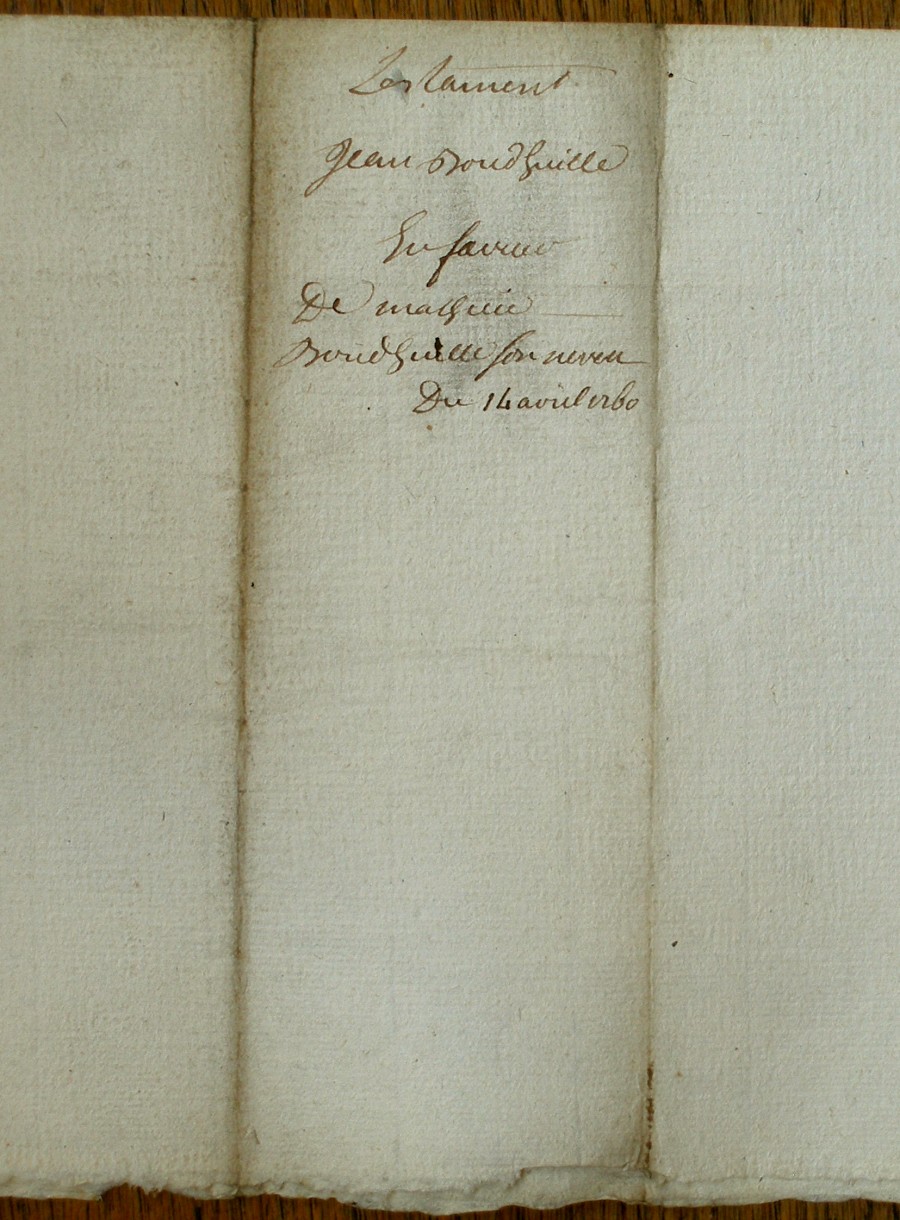 Testament
Jean Boudhuille
En faveur
De mathieu
Boudhuille son neveu
Du 14 avril 1760